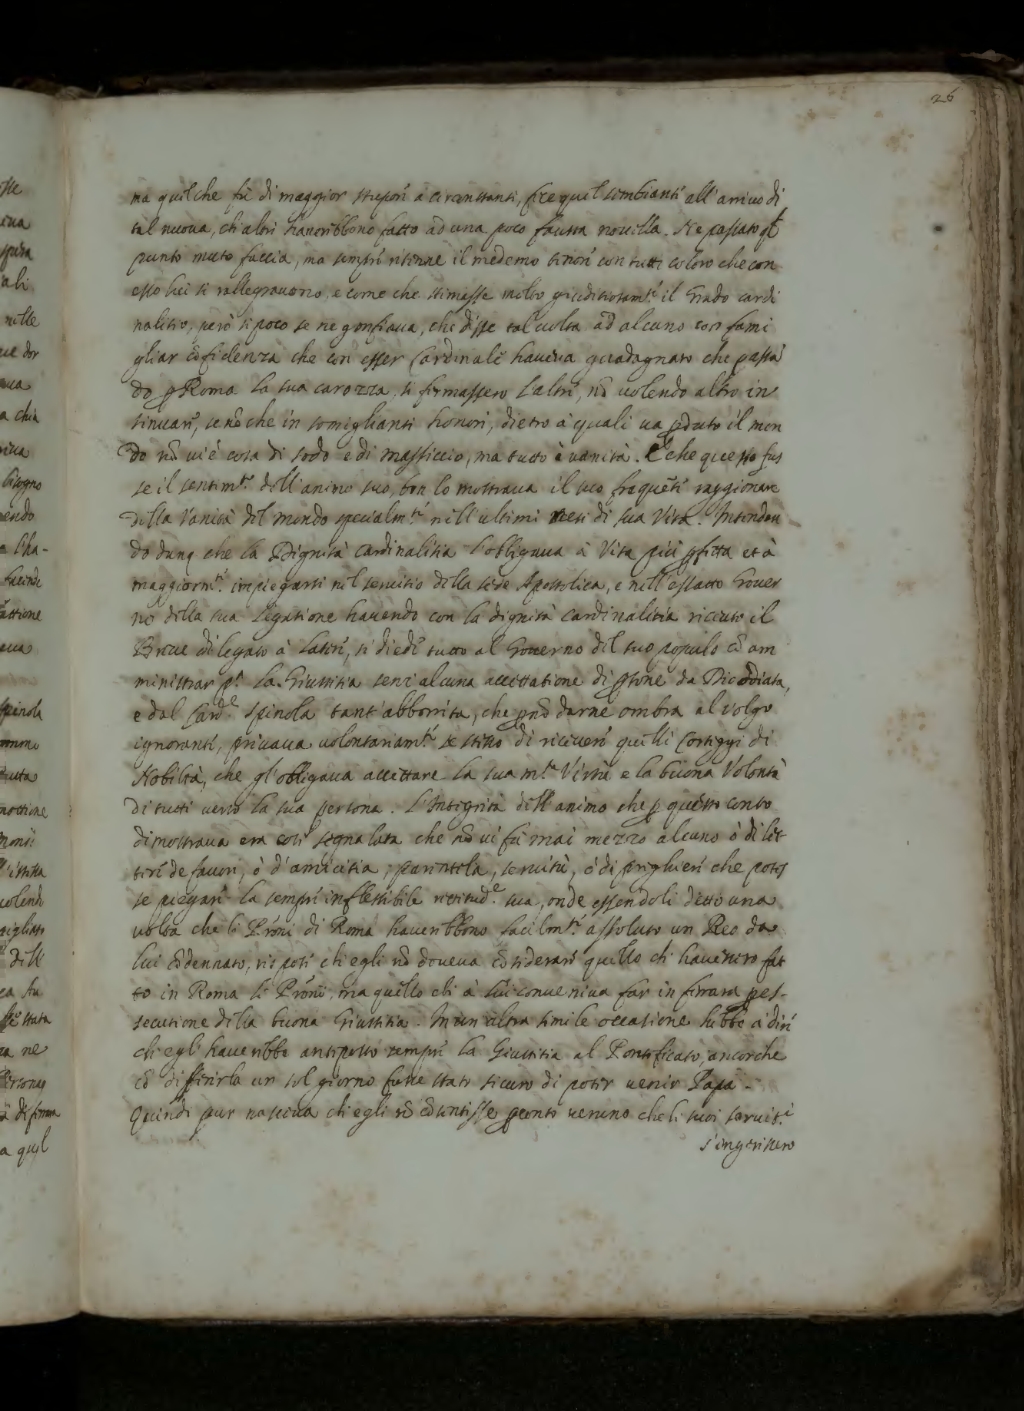 26
na quel che fù di maggior stupori à circonstanti, fece quel sembianti all'arriuo di
tal nuoua, ch'altri hauerebbono fatto ad una poco fausta nouella. Ne passato q.to
punto mutò faccia, ma sempri ritenne il medemo tenori con tutti coloro che con
esso lui si rallegrauono, e come che stimasse molto giuditiosam.te il Grado cardi
nalitio, però si poco se ne gonfiaua, che disse tal uolta ad alcuno con fami
gliar cõfidenza che in esser Cardinale haueua guadagnato che passã
do p Roma la sua carozza, si fermassero l'altri, nõ uolendo altro in
sinuari, se nõ che in somiglianti honori, dietro à quali ua pduto il mon
do nõ ui è cosa di sodo e di massiccio, ma tutto è uanità. E che questo fus
se il sentim.to dell'animo suo, ben lo mostraua il suo frequẽti raggionare
della Vanità del mondo specialm.te nell'ultimi mesi di sua Vita. Intenden
do dunq che la Dignità Cardinalitia l'obligaua à Vita più pfetta et à
maggiorm.te impiegarsi nel seruitio della sede Apostolica, e nell'essatto Gouer
no della sua Legatione hauendo con la dignità Cardinalitia riceuto il
Breue di legato à Lateri, si diedi tutto al Gouerno del suo populo cõ am
ministrar p.a la Giustitia senz'alcuna accettatione di psone da Dio odiata,
e dal Card.e Spinola tant'abborrita, che p nõ darne ombra al Volgo
ignoranti, priuaua uolontariam.te se stesso di riceueri quelli Corteggi di
Nobiltà, che gl'obligaua accettare la sua m.ta Virtù e la buona Volontà
di tutti uerso la sua persona. L'Integrità dell'animo che p questo conto
dimostraua era così segnalata che nõ ui fù mai mezzo alcuno ò di let
teri de fauori, ò d'amicitia, parentela, seruitù, ò di preghieri che potes
se piegari la sempri inflessibile rettitud.e sua, onde essendoli detto una
uolta che li Prõni di Roma hauerebbono facilm.te assoluto un Reo da
lui cõdennato, risposi ch'egli nõ doueua cõsiderari quello ch'hauessero fat
to in Roma li Prõni, ma quello ch'à lui conueniua far in ferrara p es-
secutione della buona Giustitia. In un'altra simile occasione hebbe à diri
ch'egli hauerebbe anteposto sempri la Giustitia al Pontificato, ancorche
cõ differirla un sol giorno fusse stato sicuro di poter uenir Papa.
Quindi pur nasceua ch'egli nõ cõsentisse p conti ueruno che li suoi seruit.i
s'ingerissero